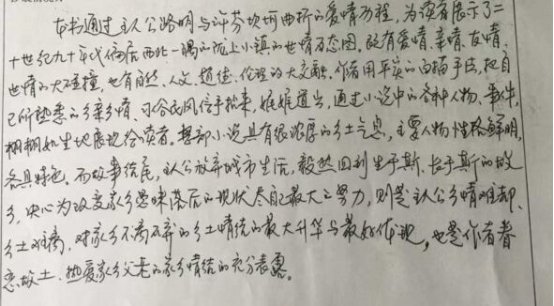 本书通过主人公路明与许芬坎坷曲折的爱情历程,为读者展示了二
十世纪九十年代偏居西北一隅的陇上小镇的世情百态图。既有爱情、亲情、友情、
世情的大碰撞,也有自然、人文、道德、伦理的大交融。作者用平实的白描手法,把自
己所熟悉的乡亲乡情、司谷民风信手拈来,娓娓道出,通过小说中的各种人物、事件,
栩栩如生地展现给读者。整部小说具有很浓厚的乡土气息,主要人物性格鲜明,
各具特色。而故事结尾,主人公放弃城市生活,毅然回到生于斯、长于斯的故
乡,决心为改变家乡愚昧落后的现状尽自己最大之努力,则是主人公乡情难却、
乡土难离,对家乡不离不弃的乡土情结的最大升华与最好体现,也是作者眷
恋故土、热爱家乡父老的家乡情结的充分表露。